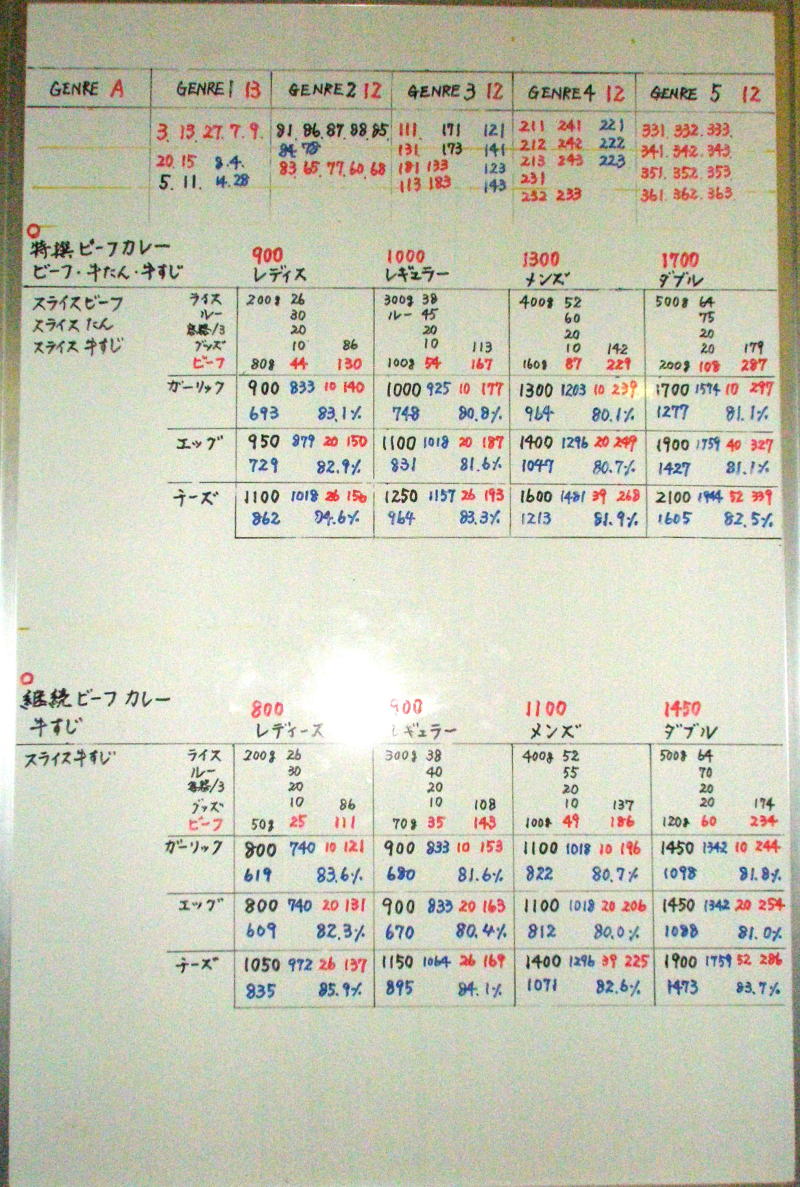 GENRE A GENRE1 13 GENRE2 12 GENRE 3 12 GENRE4 12 GENRE 5 12
3. 13. 27. 7. 9. 81. 86. 87. 88. 85 111 171 121 211 241 221 331. 332. 333.
84. 78 131 173 141 212 242 222 341. 342. 343.
20 15 8. 4. 83. 65. 77. 60. 68 181 133 123 213 243 223 351. 352. 353
5. 11. 14. 28 113 183 143 231
232 233 361. 362. 363
特撰ビーフカレー 900 1000 1300 1700
ビーフ・牛たん・牛すじ レディス レギュラー メンズ ダブル
スライスビーフ ライス 200g 26 300g 38 400g 52 500g 64
ルー 30 ルー 45 60 75
スライスたん /3 20 20 20 20
スライス牛すじ グッズ 10 86 10 113 10 142 20 179
ビーフ 80g 44 130 100g 54 167 160g 87 229 200g 108 287
ガーリック 900 833 10 140 1000 925 10 177 1300 1203 10 239 1700 1574 10 297
693 83.1% 748 80.8% 964 80.1% 1277 81.1%
エッグ 950 879 20 150 1100 1018 20 187 1400 1296 20 249 1900 1759 40 327
729 82.9% 831 81.6% 1047 80.7% 1427 81.1%
チーズ 1100 1018 26 156 1250 1157 26 193 1600 1481 39 268 2100 1944 52 339
862 84.6% 964 83.3% 1213 81.9% 1605 82.5%
継続ビーフカレー 800 900 1100 1450
牛すじ レディーズ レギュラー メンズ ダブル
スライス牛すじ ライス 200g 26 300g 38 400g 52 500g 64
ルー 30 40 55 70
/3 20 20 20 20
グッズ 10 86 10 108 10 137 20 174
ビーフ 50g 25 111 70g 35 143 100g 49 186 120g 60 234
ガーリック 800 740 10 121 900 833 10 153 1100 1018 10 196 1450 1342 10 244
619 83.6% 680 81.6% 822 80.7% 1098 81.8%
エッグ 800 740 20 131 900 833 20 163 1100 1018 20 206 1450 1342 20 254
609 82.3% 670 80.4% 812 80.0% 1088 81.0%
チーズ 1050 972 26 137 1150 1064 26 169 1400 1296 39 225 1900 1759 52 286
835 85.9% 895 84.1% 1071 82.6% 1473 83.7%